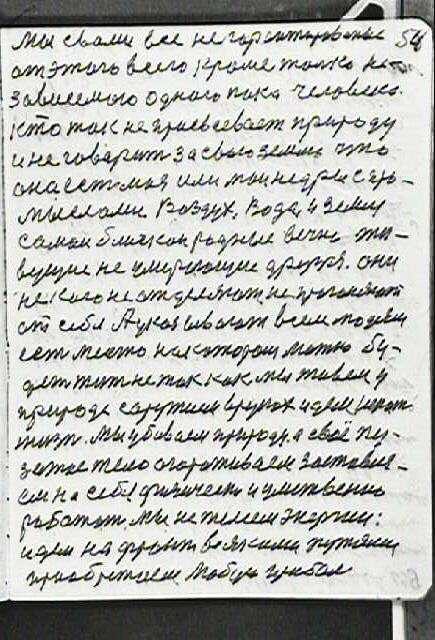 мы свами все не гарантированые 54
от этого всего кроме толко не-
зависемого одного пока человека.
Кто так не присвоевает природу
и не говорит за свою землю что
она есть моя или мои недри с про-
мыслами. Воздух, вода, и земля
самаи близкои родные вечно жи-
вущие не умерающие друзя. они
некого не отделяют, не прогоняют
от себя. А указивают всем людям
есть место на котором можно бу-
дет жит не так как мы живем у
природе с оружием в руках идем
мы убиваем природу, а своё пу-
затое тело огораживаем заставля-
ем на себя физически и умственно
работат. Мы не жалеем энергии:
идем на фронт всякими путями
приобретаем